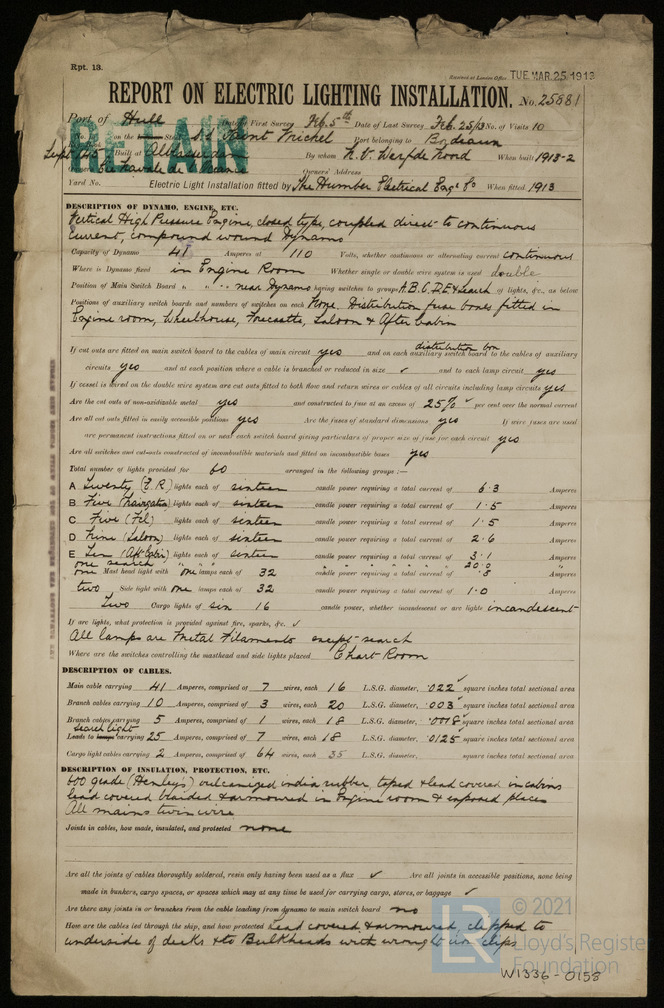 Rpt. 13.
Received at London Office TUE. MAR. 25. 1913
REPORT ON ELECTRIC LIGHTING INSTALLATION. No. 25881
Port of Hull Date of First Survey Feb. 5th Date of Last Survey Feb. 25/13 No. of Visits 10
RETAIN
on the S.S. Port belonging to
Built at By whom N. V. Werf de Noord When built 1913-2
Owners' Address
Yard No. Electric Light Installation fitted by The Humber Electrical Eng. Co When fitted 1913
DESCRIPTION OF DYNAMO, ENGINE, ETC.
Vertical High Pressure Engine, closed type, coupled direct to continuous
current, compound wound Dynamo
Capacity of Dynamo Amperes at 110 Volts, whether continuous or alternating current continuous
Where is Dynamo fixed in Engine Room Whether single or double wire system is used double
Position of Main Switch Board near Dynamo having switches to groups A.B.C.D.E & search of lights, &c., as below
Positions of auxiliary switch boards and numbers of switches on each None, Distribution fuse boxes fitted in
Engine room, Wheelhouse, Forecastle, Saloon & After Cabin
If cut outs are fitted on main switch board to the cables of main circuit yes and on each auxiliary switch board to the cables of auxiliary
distribution box
circuits yes and at each position where a cable is branched or reduced in size ✓ and to each lamp circuit yes
If vessel is wired on the double wire system are cut outs fitted to both flow and return wires or cables of all circuits including lamp circuits yes
Are the cut outs of non-oxidizable metal yes and constructed to fuse at an excess of 25% ✓ per cent over the normal current
Are all cut outs fitted in easily accessible positions yes Are the fuses of standard dimensions yes If wire fuses are used
are permanent instructions fitted on or near each switch board giving particulars of proper size of fuse for each circuit yes
Are all switches and cut-outs constructed of incombustible materials and fitted on incombustible bases yes
Total number of lights provided for 60 arranged in the following groups :—
A Twenty (E.R) lights each of sixteen candle power requiring a total current of 6.3 Amperes
B Five (Navigatn) lights each of sixteen candle power requiring a total current of 1.5 Amperes
C Five (Fcl) lights each of sixteen candle power requiring a total current of 1.5 Amperes
D Nine (Saloon) lights each of sixteen candle power requiring a total current of 2.6 Amperes
E Ten (Aft Cabin) lights each of sixteen candle power requiring a total current of 3.1 Amperes
one search " " " " " " " " 20.0 "
one Mast head light with one lamps each of 32 candle power requiring a total current of .8 Amperes
two Side light with one lamps each of 32 candle power requiring a total current of 1.0 Amperes
Two Cargo lights of six 16 candle power, whether incandescent or arc lights incandescent
If arc lights, what protection is provided against fire, sparks, &c. ✓
All lamps are Metal Filaments except search
Where are the switches controlling the masthead and side lights placed Chart Room
DESCRIPTION OF CABLES.
Main cable carrying 41 Amperes, comprised of 7 wires, each 16 L.S.G. diameter, .022 ✓ square inches total sectional area
Branch cables carrying 10 Amperes, comprised of 3 wires, each 20 L.S.G. diameter, .003 ✓ square inches total sectional area
Branch cables carrying 5 Amperes, comprised of 1 wires, each 18 L.S.G. diameter, .0018 ✓ square inches total sectional area
search light
Leads to lamps carrying 25 Amperes, comprised of 7 wires, each 18 L.S.G. diameter, .0125 ✓ square inches total sectional area
Cargo light cables carrying 2 Amperes, comprised of 64 wires, each 35 L.S.G. diameter, square inches total sectional area
DESCRIPTION OF INSULATION, PROTECTION, ETC.
600 grade (Henleys) vulcanized india rubber, taped & lead covered in cabins
lead covered braided & armoured in Engine room & exposed places
All mains twin wire
Joints in cables, how made, insulated, and protected none
Are all the joints of cables thoroughly soldered, resin only having been used as a flux ✓ Are all joints in accessible positions, none being
made in bunkers, cargo spaces, or spaces which may at any time be used for carrying cargo, stores, or baggage ✓
Are there any joints in or branches from the cable leading from dynamo to main switch board no
How are the cables led through the ship, and how protected Lead covered & armoured, clipped to
underside of decks & to Bulkheads with wrought iron clips
© 2021
LR
Lloyd's Register
Foundation
W1336-0158